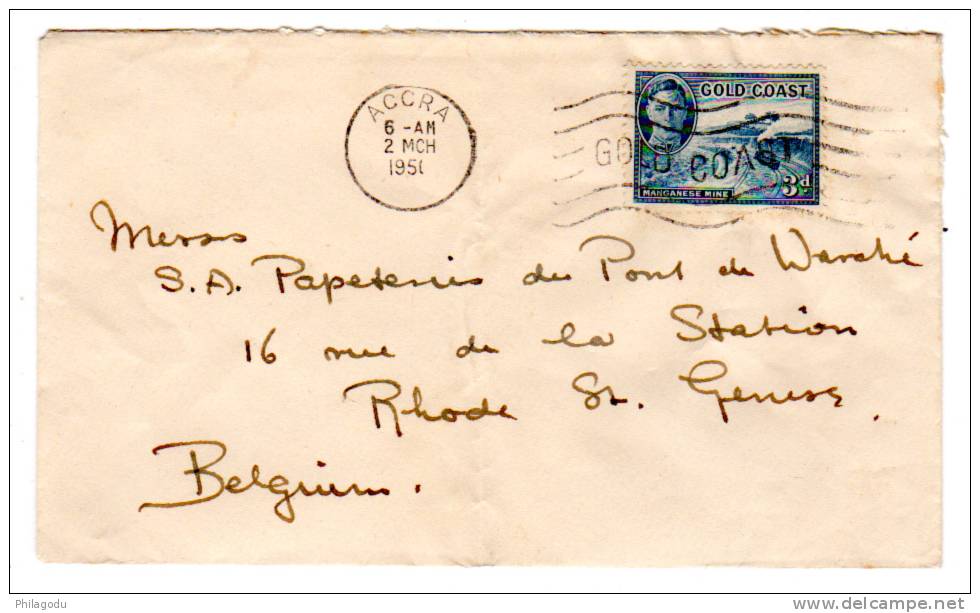 ACCRA
6 -AM
2 MCH
1950
GOLD COAST
GOLD COAST
MANGANESE MINE
3d
Messrs
S.A. Papeteries du Pont de Warché
16 rue de la Station
Rhode St. Genese.
Belgium.
Philagodu
www.delcampe.net